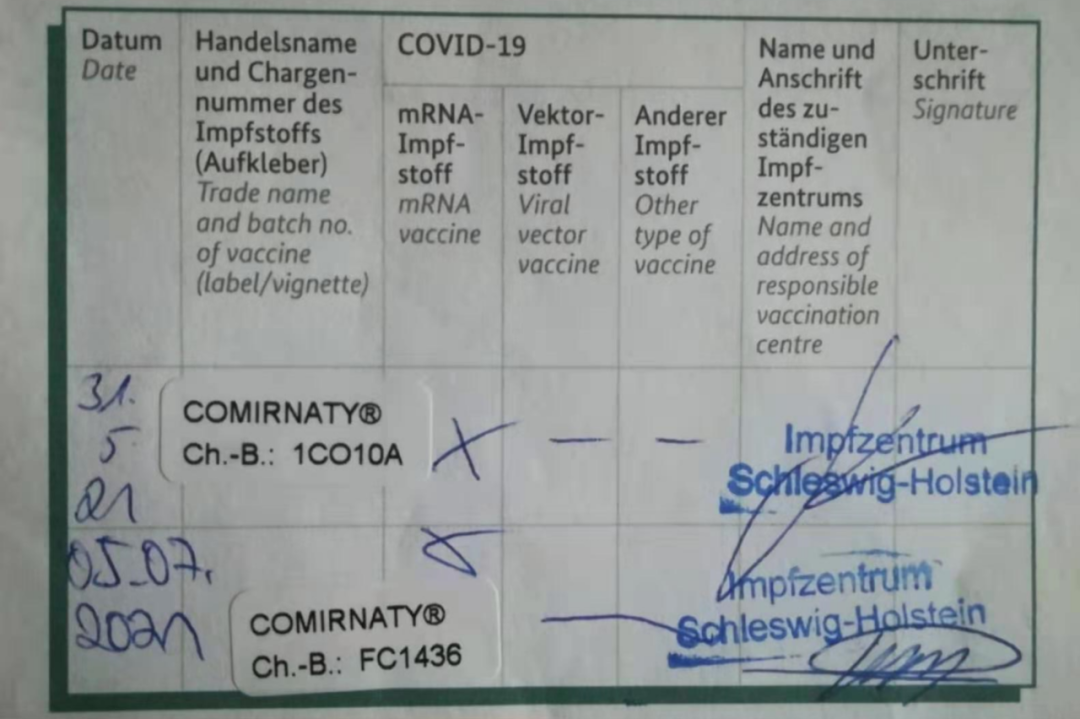 Datum
Date
Handelsname
und Chargen-
nummer des
Impfstoffs
(Aufkleber)
Trade name
and batch no.
of vaccine
(label/vignette)
COVID-19
mRNA-
Impf-
stoff
mRNA
vaccine
Vektor-
Impf-
stoff
Viral
vector
vaccine
Anderer
Impf-
stoff
Other
type of
vaccine
Name und
Anschrift
des zu-
ständigen
Impf-
zentrums
Name and
address of
responsible
vaccination
centre
Unter-
schrift
Signature
31.
5
21
COMIRNATY®
Ch.-B.: 1CO10A
X — —
Impfzentrum
Schleswig-Holstein
05.07.
2021
COMIRNATY®
Ch.-B.: FC1436
Impfzentrum
Schleswig-Holstein